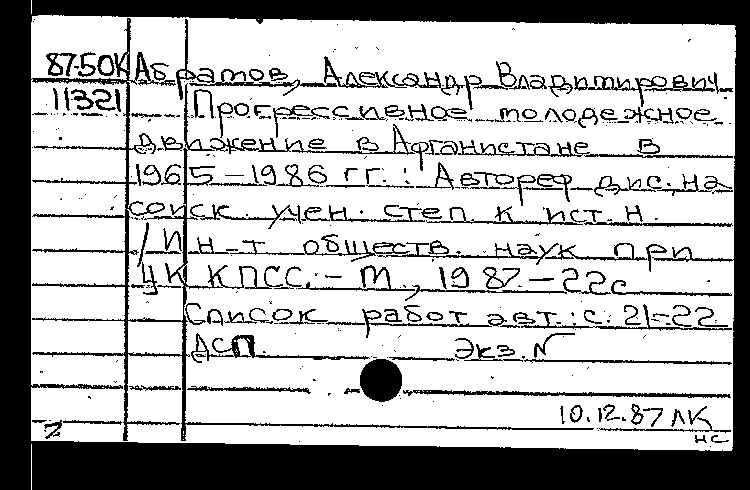 87-50К Абратов, Александр Владимирович.
11321 Прогрессивное молодежное
движение в Афганистане в
1965-1986 гг.: Автореф дис. на
соиск. учен. степ. к ист. н.
/Ин-т обществ. наук при
ЦК КПСС. - М, 1987. - 22с
Список работ авт.: с. 21-22
ДСП. Экз. N
10.12.87 ЛК
нс